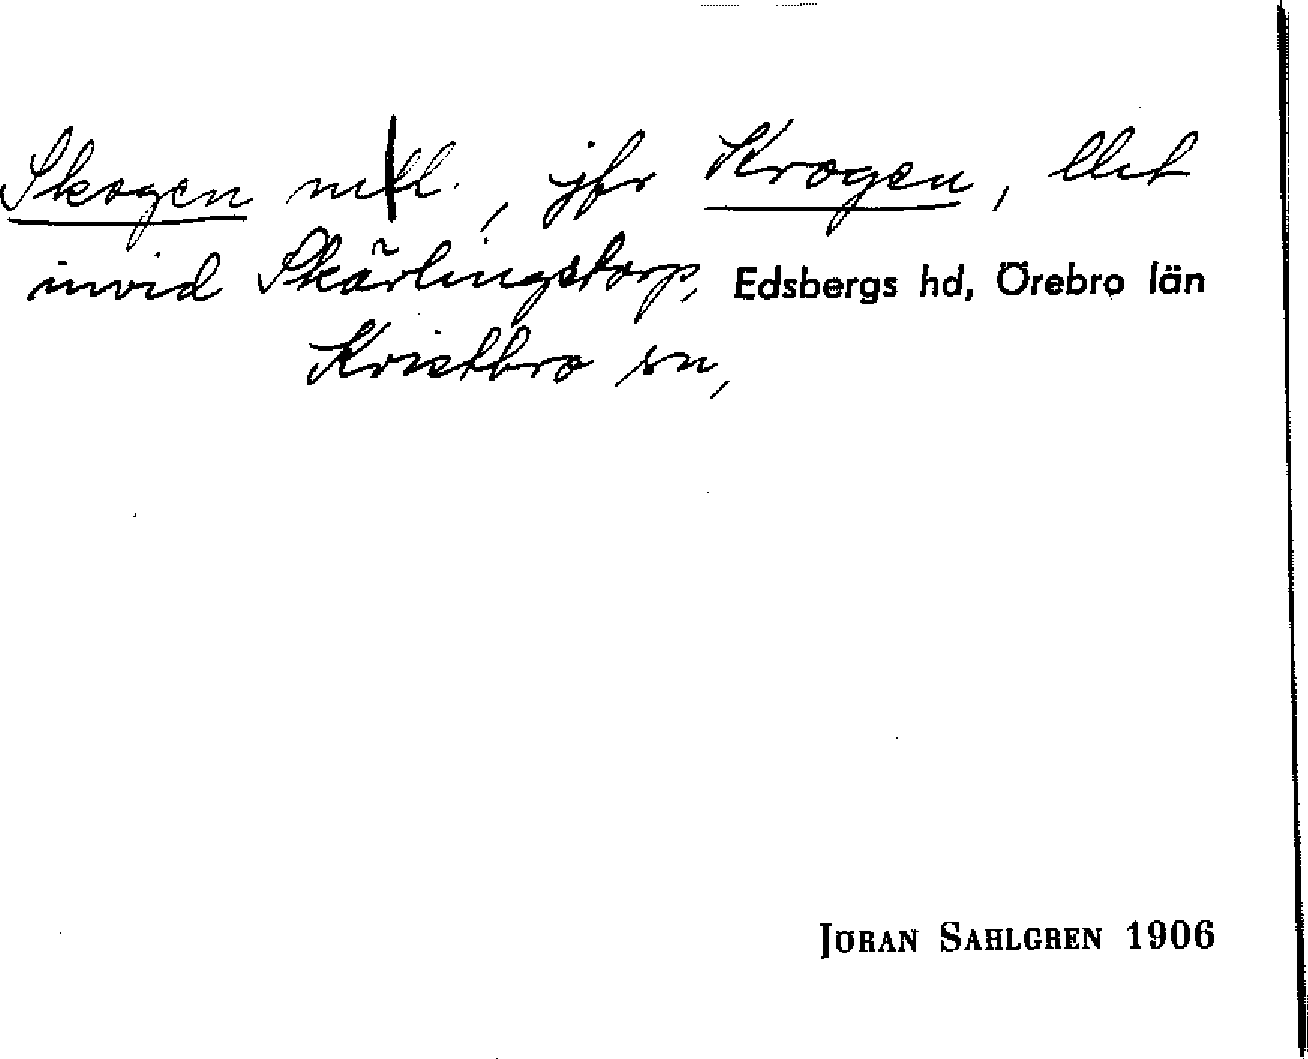 Skogen , jfr Krogen,
invid Skärlingstorp, Edsbergs hd, Örebro län
Kvistbro sn,
JÖRAN SAHLGREN 1906